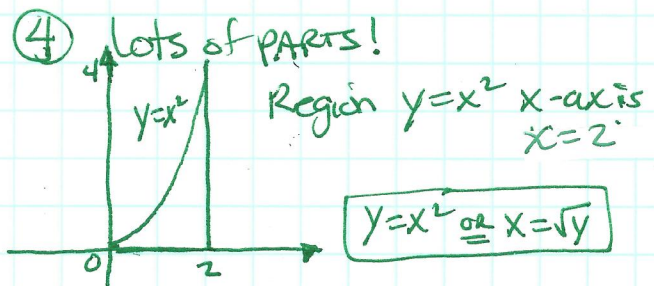 ④ Lots of PARTS!
4
y=x²
Region y=x² x-axis
x=2
y=x² OR x=√y
0 2